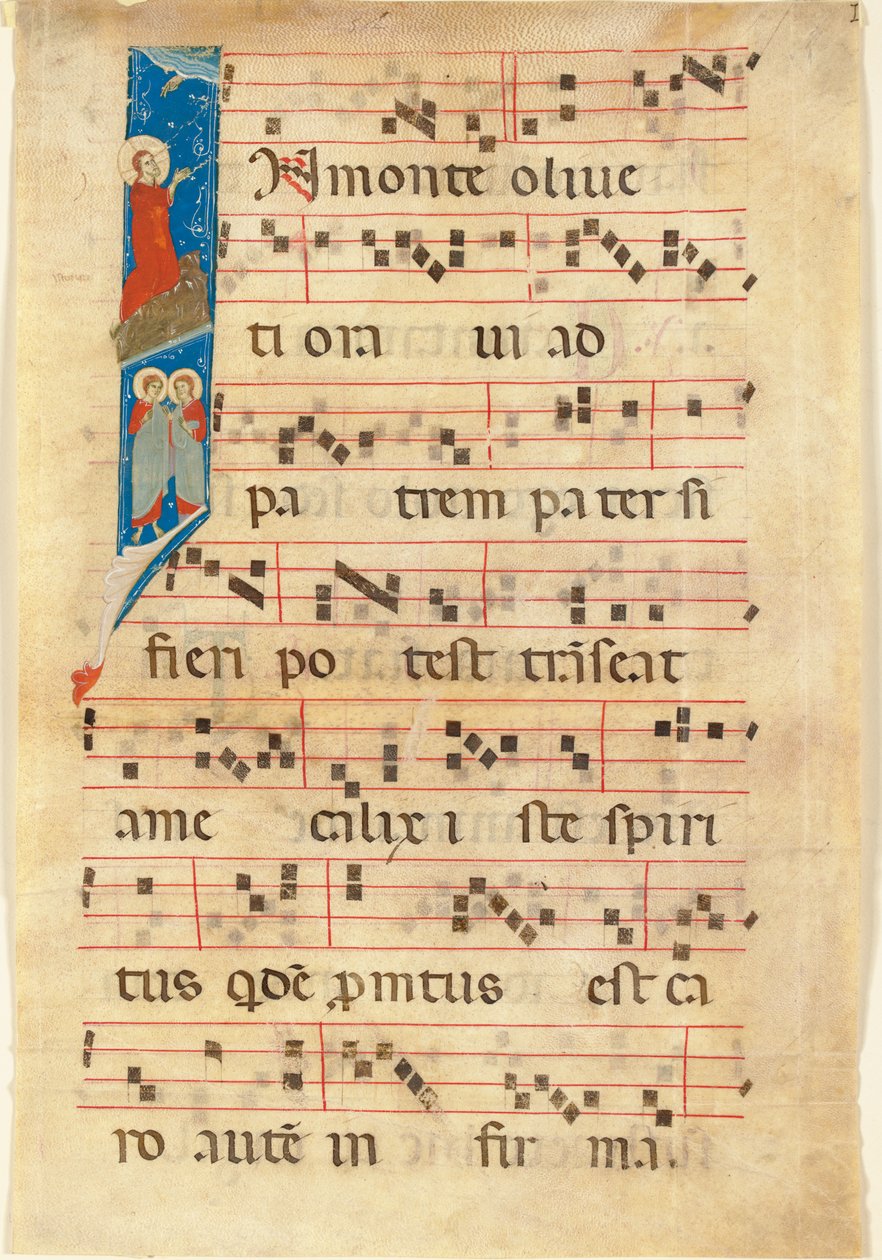 In monte oliue
ti ora ui ad
pa trem pa ter si
fieri po test trãseat
a me calix i ste spiri
tus q̇dẽ ꝓmtus est ca
ro autẽ in fir ma.